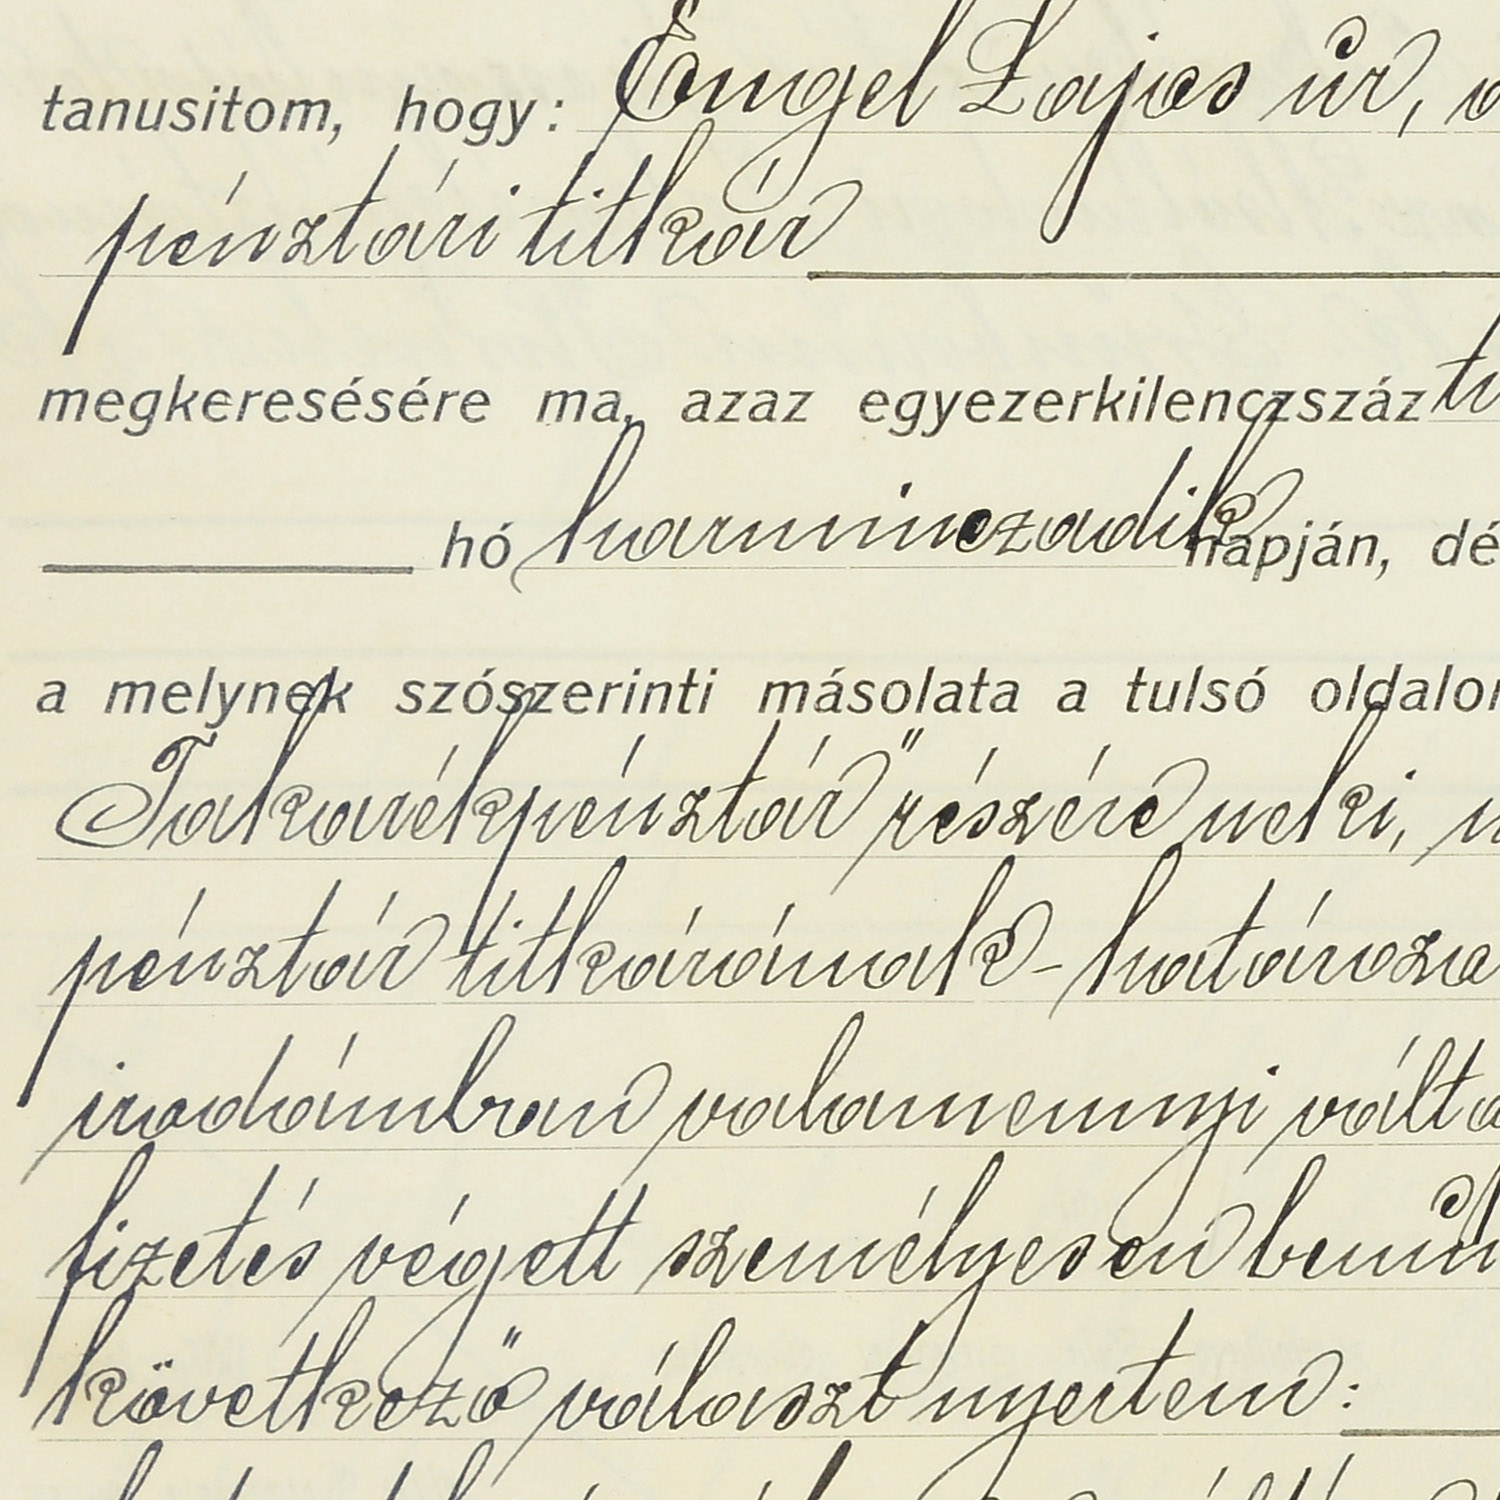 tanusitom, hogy: Engel Lajos úr,
pénztári titkár
megkeresésére ma, azaz egyezerkilenczszáz
hó harminczadik napján, dé
a melynek szószerinti másolata a tulsó oldalon
Takarékpénztár" részére neki,
pénztár titkárának - határoza
irodámban valamennyi válta
fizetés végett személyesen bemu
következő választ nyertem: